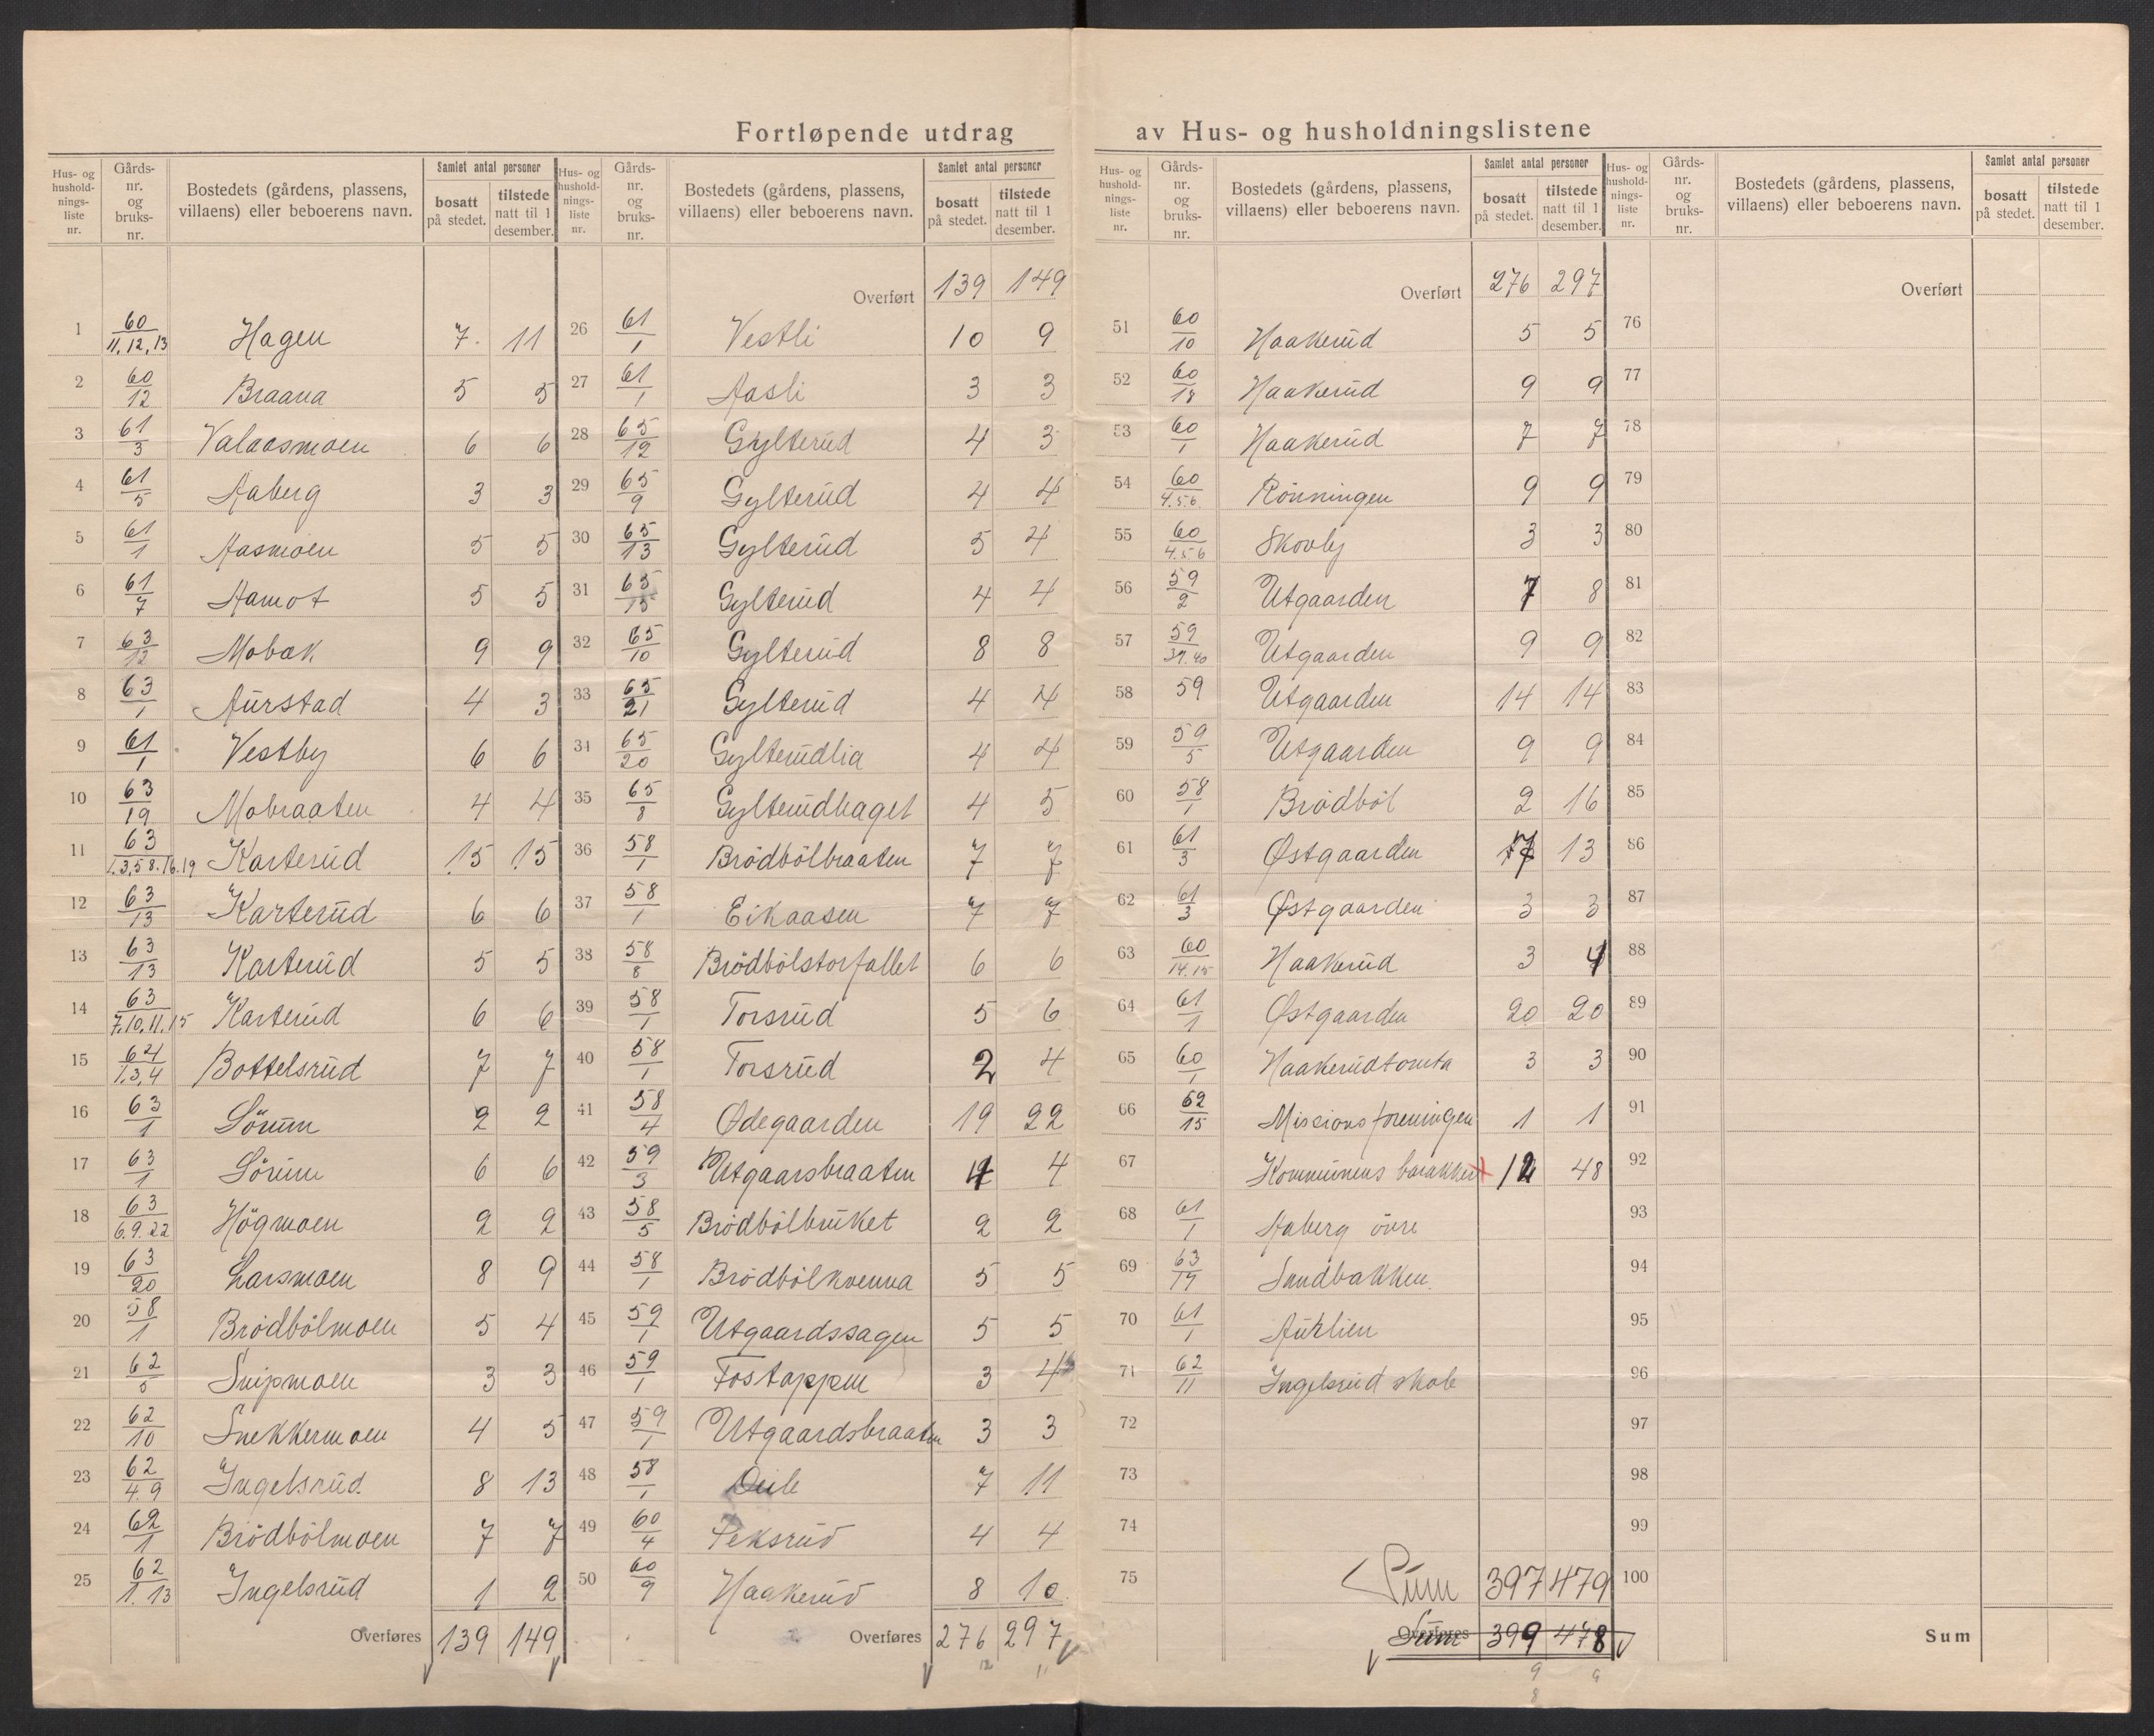 Fortløpende utdrag av Hus- og husholdningslistene
Hus- og hushold-nings-liste nr. | Gårds-nr. og bruks-nr. | Bostedets (gårdens, plassens, villaens) eller beboerens navn. | Samlet antal personer | bosatt på stedet. | tilstede natt til 1 desember.
1 60/11, 12, 13 Hagen 7. 11
2 60/12 Braana 5 5
3 61/3 Valaasmoen 6 6
4 61/5 Aaberg 3 3
5 61/1 Aasmoen 5 5
6 61/7 Aamot 5 5
7 63/12 Mobak 9 9
8 63/1 Aurstad 4 3
9 61/1 Vestby 6 6
10 63/19 Mobraaten 4 4
11 63/1.3.5 8.16.19 Karterud 15 15
12 63/13 Karterud 6 6
13 63/13 Karterud 5 5
14 63/7.10.11.15 Karterud 6 6
15 64/1,3,4 Bottelsrud 7 7
16 63/1 Sörum 2 2
17 63/1 Sörum 6 6
18 63/6.9.22 Högmoen 2 2
19 63/20 Larsmoen 8 9
20 58/1 Brödbölmoen 5 4
21 62/5 Snipmoen 3 3
22 62/10 Snekkermoen 4 5
23 62/4.9 Ingelsrud 8 13
24 62/1 Brödbölmoen 7 7
25 62/1.13 Ingelsrud 1 2
Overføres 139 149
Hus- og hushold-nings-liste nr. | Gårds-nr. og bruks-nr. | Bostedets (gårdens, plassens, villaens) eller beboerens navn. | Samlet antal personer | bosatt på stedet. | tilstede natt til 1 desember.
Overført 139 149
26 61/1 Vestli 10 9
27 61/1 Aasli 3 3
28 65/12 Gylterud 4 3
29 65/9 Gylterud 4 4
30 65/13 Gylterud 5 4
31 65/15 Gylterud 4 4
32 65/10 Gylterud 8 8
33 65/21 Gylterud 4 4
34 65/20 Gylterudlia 4 4
35 65/8 Gylterudhaget 4 5
36 58/1 Brödbölbraaten 7 7
37 58/1 Eikaasen 7 7
38 58/8 Brödbölstorfallet 6 6
39 58/1 Torsrud 5 6
40 58/1 Torsrud 2 4
41 58/4 Ødegaarden 19 22
42 59/3 Utgaarsbraaten 4 4
43 58/5 Brödbölbruket 2 2
44 58/1 Brödbölkvenna 5 5
45 59/1 Utgaardssagen 5 5
46 59/1 Fostoppen 3 4
47 59/1 Utgaardsbraaten 3 3
48 58/1 7 11
49 60/4 Feksrud 4 4
50 60/9 Haakerud 8 10
Overføres 276 297
12 11
Hus- og hushold-nings-liste nr. | Gårds-nr. og bruks-nr. | Bostedets (gårdens, plassens, villaens) eller beboerens navn. | Samlet antal personer | bosatt på stedet. | tilstede natt til 1 desember.
Overført 276 297
51 60/10 Haakerud 5 5
52 60/18 Haakerud 9 9
53 60/1 Haakerud 7 7
54 60/4.5.6. Rönningen 9 9
55 60/4.5.6 Skovby 3 3
56 59/2 Utgaarden 7 8
57 59/39.40 Utgaarden 9 9
58 59 Utgaarden 14 14
59 59/5 Utgaarden 9 9
60 58/1 Brödböl 2 16
61 61/3 Østgaarden 13
62 61/3 Østgaarden 3 3
63 60/14.15 Haakerud 3 4
64 61/1 Østgaarden 20 20
65 60/1 Haakerudtomta 3 3
66 62/15 Missionsforeningen 1 1
67 Kommunens barakker 12 48
68 61/1 Aaberg övre
69 63/19 Sandbakken.
70 61/1 Auklien
71 62/11 Ingelsrud skole
72
73
74
75 Sum 397 479
Overføres Sum 399 478
9 9
8
Hus- og hushold-nings-liste nr. | Gårds-nr. og bruks-nr. | Bostedets (gårdens, plassens, villaens) eller beboerens navn. | Samlet antal personer | bosatt på stedet. | tilstede natt til 1 desember.
Overført
76
77
78
79
80
81
82
83
84
85
86
87
88
89
90
91
92
93
94
95
96
97
98
99
100
Sum